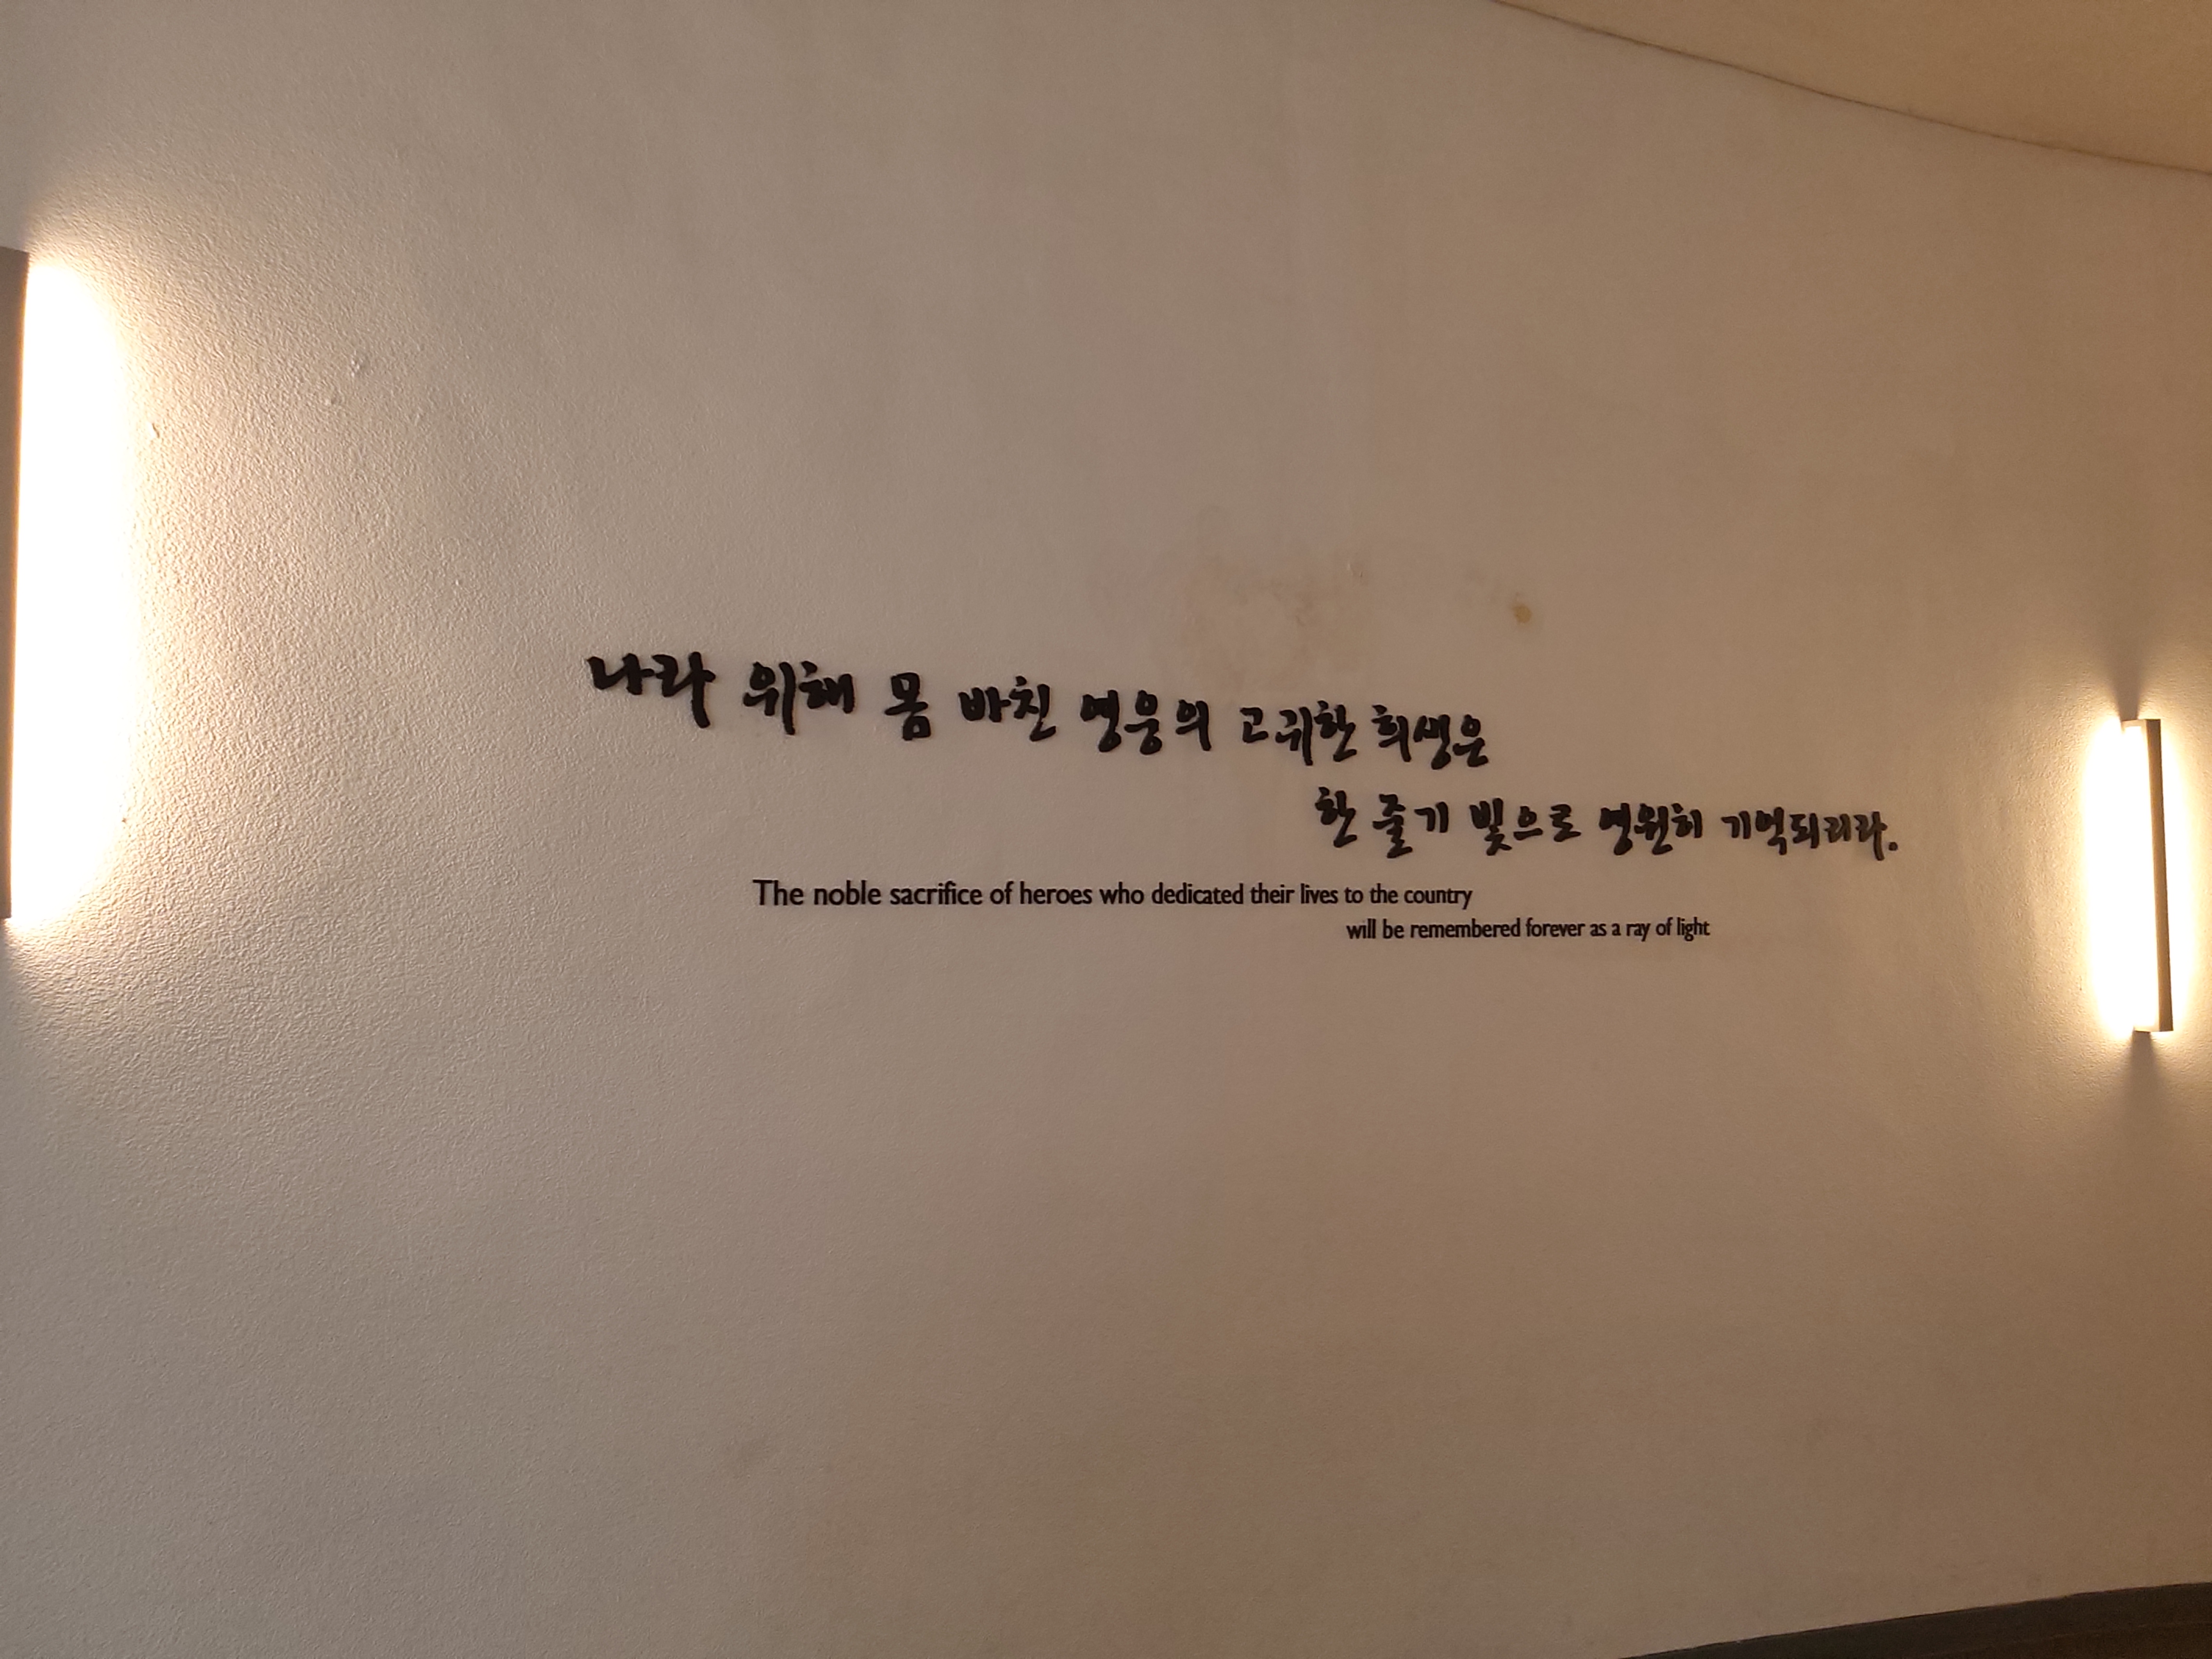 나라 위해 몸 바친 영웅의 고귀한 희생은
한 줄기 빛으로 영원히 기억되리라.
The noble sacrifice of heroes who dedicated their lives to the country
will be remembered forever as a ray of light